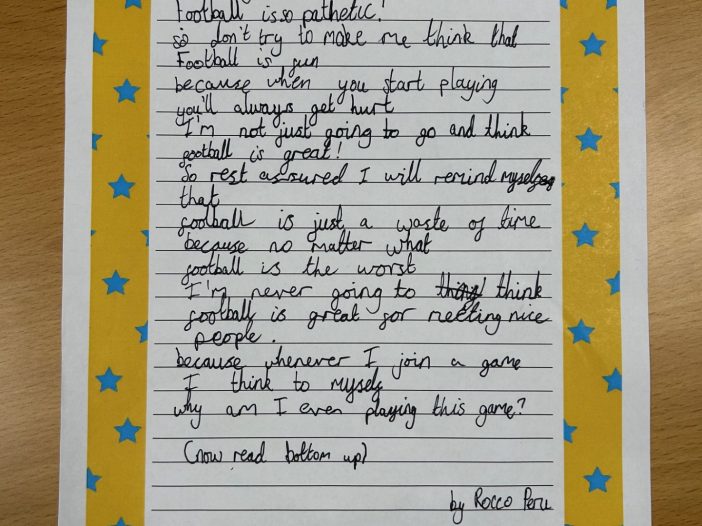 Football is so pathetic!
so don't try to make me think that
Football is fun
because when you start playing
you'll always get hurt
I'm not just going to go and think
football is great!
So rest assured I will remind myself
that
football is just a waste of time
because no matter what
football is the worst
I'm never going to think
football is great for meeting nice
people.
because whenever I join a game
I think to myself
why am I even playing this game?
(now read bottom up)
by Rocco Peru